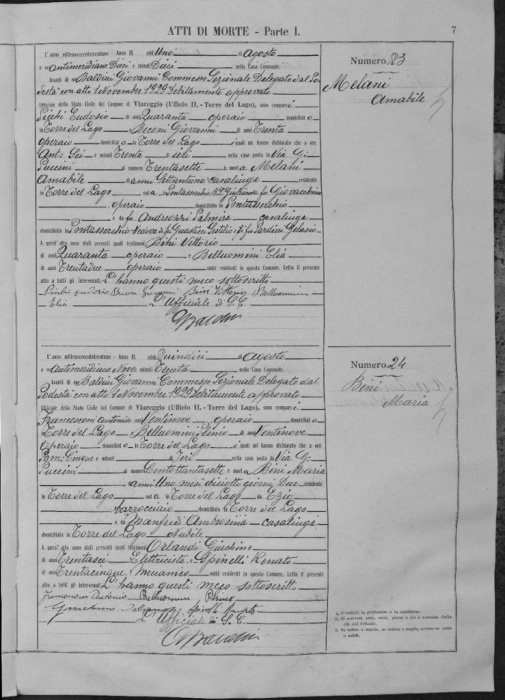 ATTI DI MORTE - Parte I.
7
L'anno millenovecentotrentuno - Anno II. addì Uno di Agosto
a antimeridiane Dieci e minuti Dieci nella Casa Comunale.
Avanti di me Baldini Giovanni Commesso Sezionale Delegato dal Po
destà con atto 1 Novembre 1929 debitamente approvato
Ufficiale dello Stato Civile del Comune di Viareggio (Ufficio II.-Torre del Lago), sono comparsi
Picchi Eudosio di anni Quaranta operaio domiciliato a
Torre del Lago e Beconi Giovanni di anni Trenta
operaio domiciliato a Torre del Lago i quali mi hanno dichiarato che a ore
Ant. Sei e minuti Trenta di ieri nella casa posta in Via G.
Puccini al numero Trentasette è morta Melani
Amabile di anni Settantuno casalinga residente
in Torre del Lago nata a Pontasserchio da fu Giovacchino
operaio domiciliato in Pontasserchio
e da fu Andreozzi Palmira casalinga
domiciliata in Pontasserchio Vedova di
A quest'atto sono stati presenti quali testimoni Bini Vittorio
di anni Quaranta operaio e Belluomini Elia
di anni Trentadue operaio ambi residenti in questo Comune. Letto il presente
atto a tutti gli intervenuti, L'hanno questi meco sottoscritto
Picchi Eudosio Beconi Giovanni Bini Vittorio Belluomini
Elia L'Ufficiale di S.C.
GBaldini
Numero 23
Melani
Amabile
L'anno millenovecentotrentuno - Anno II. addì Quindici di Agosto
a Antimeridiane Nove e minuti Trenta nella Casa Comunale.
Avanti di me Baldini Giovanni Commesso Sezionale Delegato dal
Podestà con atto 1 Novembre 1929 debitamente approvato
Ufficiale dello Stato Civile del Comune di Viareggio (Ufficio II.-Torre del Lago), sono comparsi
Francesconi Antonio di anni Ventinove operaio domiciliato a
Torre del Lago e Belluomini Plinio di anni Ventinove
Operaio domiciliato a Torre del Lago i quali mi hanno dichiarato che a ore
Pom. Cinque e minuti di Ieri nella casa posta in Via G.
Puccini al numero Centottantasette è morta Bini Maria
di anni Uno mesi diciotto giorni Due residente
in Torre del Lago nata a Torre del Lago da Ezio
barrocciaio domiciliato in Torre del Lago
e da Manfredi Ambrosina casalinga
domiciliata in Torre del Lago Nubile
A quest'atto sono stati presenti quali testimoni Orlandi Giuchino
di anni Trentasei Elettricista e Spinelli Renato
di anni Trentacinque meccanico ambi residenti in questo Comune. Letto il presente
atto a tutti gli intervenuti L'hanno questi meco sottoscritto
Francesconi Antonio Belluomini Plinio
Spinelli Renato
L'Ufficiale di S.C.
GBaldini
Numero 24
Bini
Maria